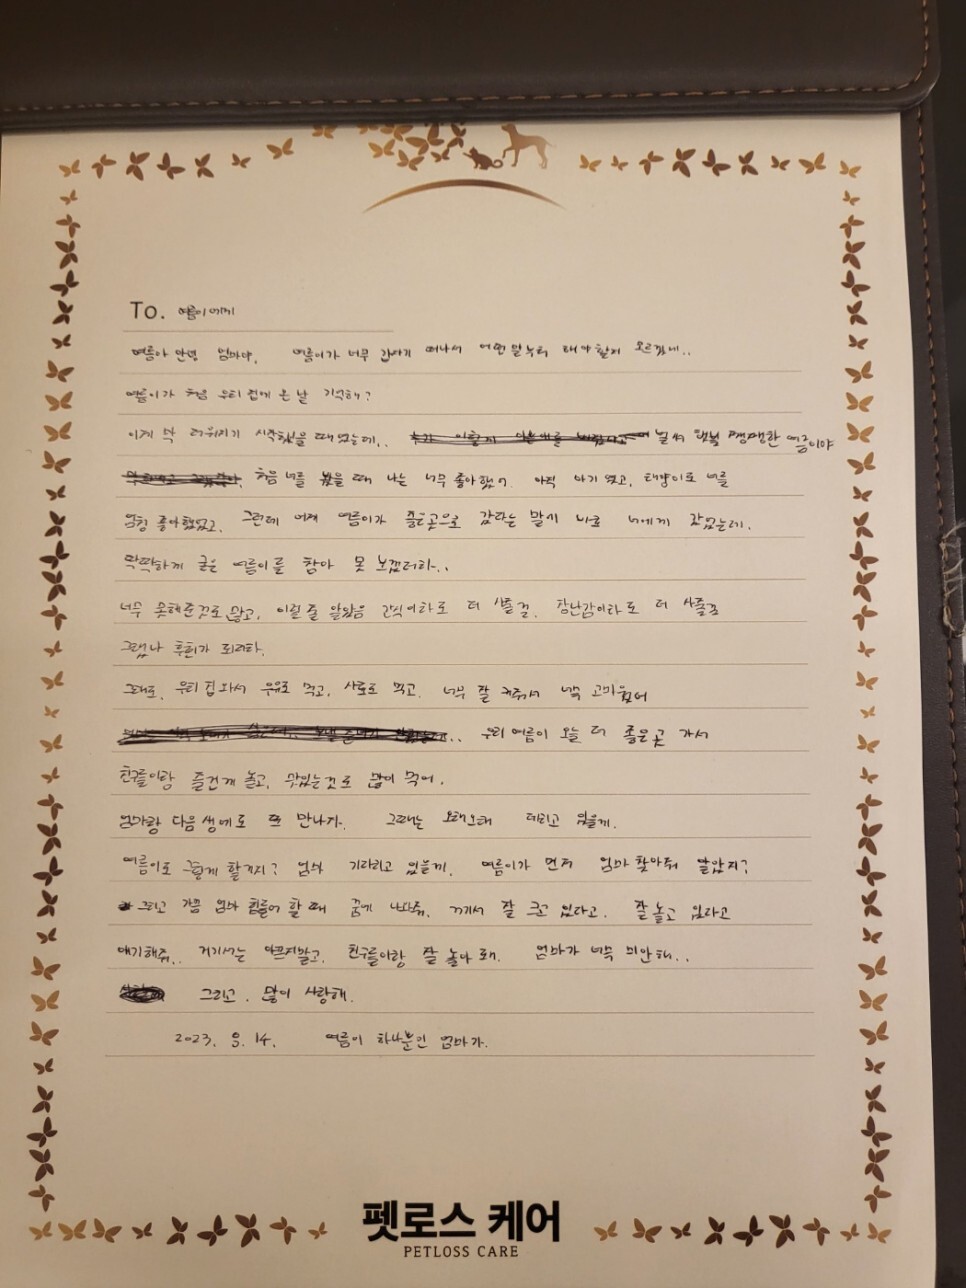 To. 여름이에게
여름아 안녕 엄마야. 여름이가 너무 갑자기 떠나서 어떤 말부터 해야할지 모르겠네..
여름이가 처음 우리 집에 온 날 기억해?
이제 막 더워지기 시작했을 때였는데.. 벌써 햇볕 쨍쨍한 여름이야
처음 너를 봤을 때 나는 너무 좋아했어. 아직 아기였고, 태양이도 너를
엄청 좋아했었고. 그런데 어제 여름이가 좋은곳으로 갔다는 말에 바로 너에게 갔었는데.
딱딱하게 굳은 여름이를 참아 못 보겠더라..
너무 못해준것도 많고, 이럴 줄 알았음 간식이라도 더 사줄걸. 장난감이라도 더 사줄걸
그랬나 후회가 되더라.
그래도, 우리 집 와서 우유도 먹고, 사료도 먹고. 너무 잘 커줘서 너무 고마웠어
.. 우리 여름이 오늘 더 좋은곳 가서
친구들이랑 즐겁게 놀고, 맛있는것도 많이 먹어.
엄마랑 다음 생에도 또 만나자. 그때는 오래오래 데리고 있을게.
여름이도 그렇게 할거지? 엄마 기다리고 있을게. 여름이가 먼저 엄마 찾아줘 알았지?
그리고 가끔 엄마 힘들어 할 때 꿈에 나와줘. 가서 잘 크고 있다고. 잘 놀고 있다고
얘기해줘.. 거기서는 아프지말고. 친구들이랑 잘 놀아 줘. 엄마가 너무 미안해..
그리고. 많이 사랑해.
2023. 8. 14. 여름이 하나뿐인 엄마가.
펫로스 케어
PETLOSS CARE